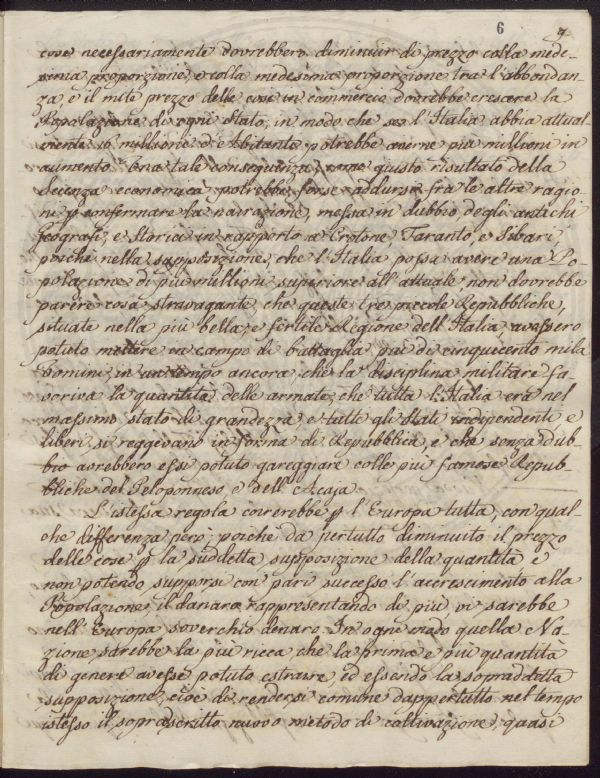 6
cose necessariamente dovrebbero diminuir di prezzo colla mede-
sima proporzione, e colla medesima proporzione tra l'abbondan-
za, e il mite prezzo delle cose in commercio dovrebbe crescere la
Popolazione di ogni Stato; in modo che se l'Italia abbia attual
mente 16 millioni d'Abitanti potrebbe averne più millioni in
aumento. Una tale conseguenza, come giusto risultato della
scienza economica potrebbe forse addursi fra le altre ragio
ni p confermare la narrazione, messa in dubbio, degli antichi
Geografi, e Storici in rapporto a Crotone, Taranto, e Sibari;
poichè nella supposizione, che l'Italia possa avere una Po-
polazione di più millioni superiore all'attuale, non dovrebbe
parere cosa stravagante, che queste tre piccole Repubbliche,
situate nella più bella, e fertile Regione dell'Italia, avessero
potuto mettere in campo di battaglia più di cinquecento mila
Uomini, in un tempo ancora, che la disciplina militare fa-
voriva la quantità delle armate, che tutta l'Italia era nel
massimo stato di grandezza e tutti gli Stati indipendenti e
liberi si reggevano in forma di Repubblica, e che senza dub-
bio avrebbero essi potuto gareggiare colle più famose Repub-
bliche del Peloponneso, e dell'Acaja.
L'istessa regola correrebbe p l'Europa tutta, con qual-
che differenza però; poiche da pertutto diminuito il prezzo
delle cose p la suddetta supposizione della quantità, e
non potendo supporsi con pari successo l'accrescimento alla
Popolazione, il danaro rappresentando di più vi sarebbe
nell'Europa soverchio denaro. In ogni modo quella Na-
zione sarebbe la più ricca che la prima e più quantità
di genere avesse potuto estrarre, ed essendo la sopradetta
supposizione, cioè di rendersi comune dappertutto nel tempo
istesso il soprascritto nuovo metodo di coltivazione, quasi